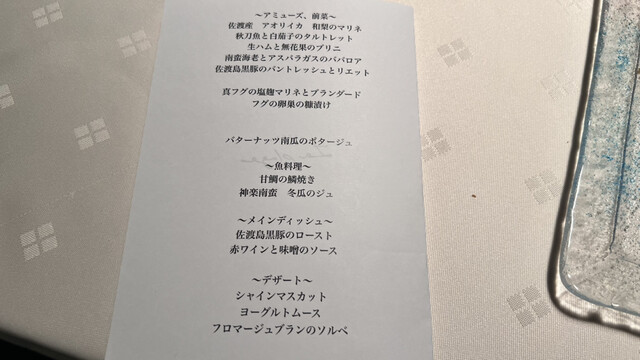 ～アミューズ、前菜～
佐渡産　アオリイカ　和梨のマリネ
秋刀魚と白茄子のタルトレット
生ハムと無花果のブリニ
南蛮海老とアスパラガスのババロア
佐渡島黒豚のパントレッシュとリエット
真フグの塩麹マリネとブランダード
フグの卵巣の糠漬け
バターナッツ南瓜のポタージュ
～魚料理～
甘鯛の鱗焼き
神楽南蛮　冬瓜のジュ
～メインディッシュ～
佐渡島黒豚のロースト
赤ワインと味噌のソース
～デザート～
シャインマスカット
ヨーグルトムース
フロマージュブランのソルベ